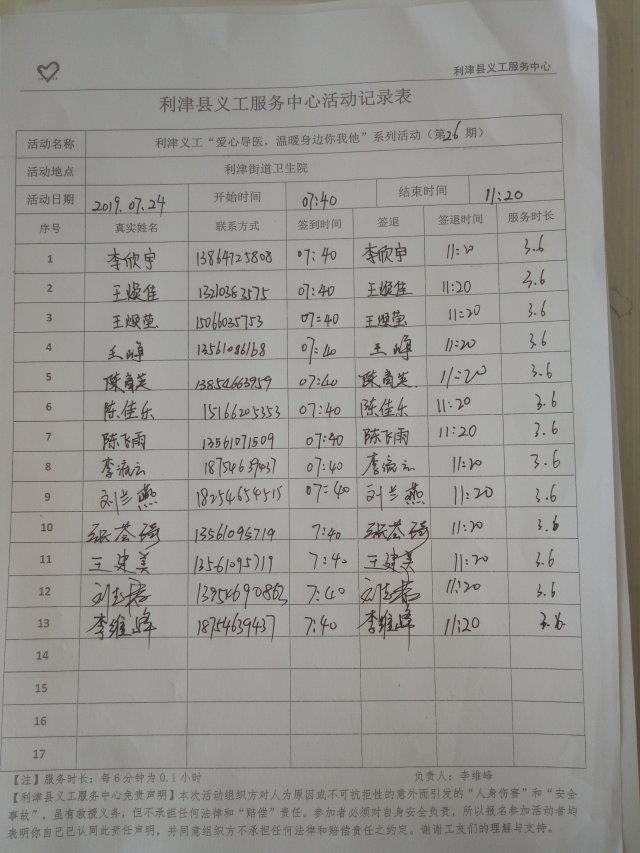 利津县义工服务中心
利津县义工服务中心活动记录表
活动名称 利津义工“爱心导医，温暖身边你我他”系列活动（第26期）
活动地点 利津街道卫生院
活动日期 2019.07.24 开始时间 07:40 结束时间 11:20
序号 真实姓名 联系方式 签到时间 签退 签退时间 服务时长
1 李欣宇 13864725808 07:40 李欣宇 11:20 3.6
2 王焕佳 13210383575 07:40 王焕佳 11:20 3.6
3 王焕莹 15066035753 07:40 王焕莹 11:20 3.6
4 王峥 13561086168 07:40 王峥 11:20 3.6
5 13854663959 07:40 11:20 3.6
6 陈佳乐 15166205353 07:40 陈佳乐 11:20 3.6
7 陈飞雨 13561071509 07:40 陈飞雨 11:20 3.6
8 李 云 18754639437 07:40 李 云 11:20 3.6
9 刘兰燕 18254654515 07:40 刘兰燕 11:20 3.6
10 13561095719 7:40 11:20 3.6
11 王建美 13561095719 7:40 王建美 11:20 3.6
12 7:40 11:20 3.6
13 李维峰 18754639437 7:40 李维峰 11:20 3.6
14
15
16
17
【注】服务时长：每6分钟为0.1小时 负责人：李维峰
【利津县义工服务中心免责声明】本次活动组织方对人为原因或不可抗拒性的意外而引发的“人身伤害”和“安全
事故”，虽有救援义务，但不承担任何法律和“赔偿”责任。参加者必须对自身安全负责，所以报名参加活动者均
表明你自己已认同此责任声明，并同意组织方不承担任何法律和赔偿责任之约定。谢谢工友们的理解与支持。